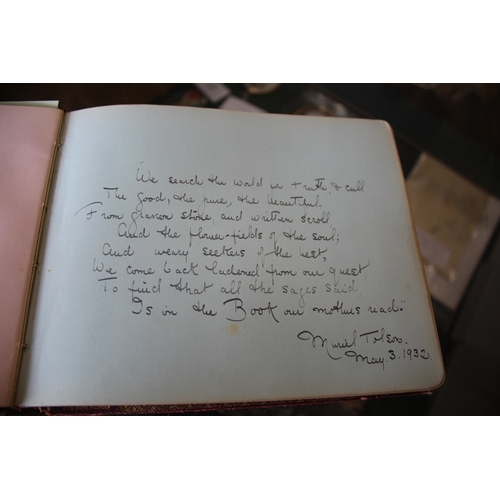 "We search the world for truth, & cull
The good, the pure, the beautiful.
From graven stone, and written scroll
And the flower-fields of the soul;
And weary seekers of the best,
We come back ladened from our quest,
To find that all the sages said,
Is in the Book our mothers read."
Muriel Tolson.
May 3. 1932.